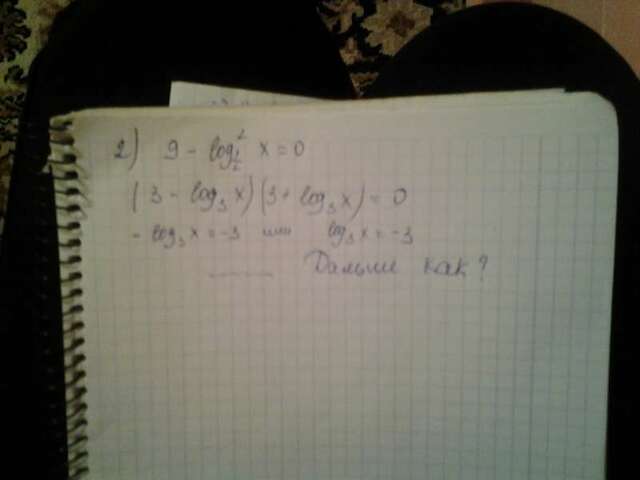 2) 9 - log²_{1/2} x = 0
(3 - log₃ x)(3 + log₃ x) = 0
- log₃ x = -3 или log₃ x = -3
Дальше как?